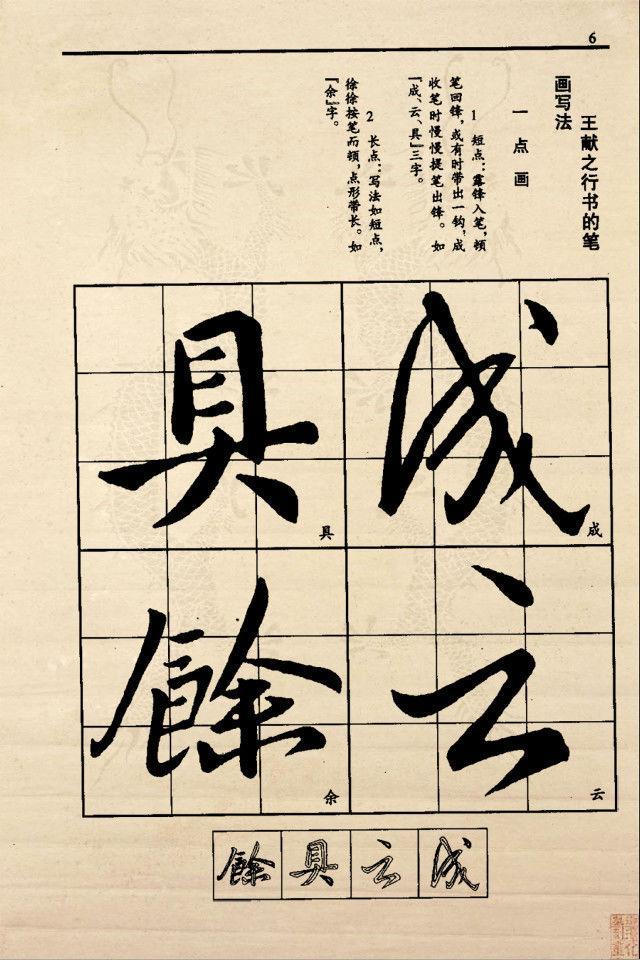 6
王献之行书的笔
画写法
一 点 画
1 短点：露锋入笔，顿
笔回锋，或有时带出一钩，成
收笔时慢慢提笔出锋。如
『成、云、具』三字。
2 长点：写法如短点，
徐徐按笔而顿，点形带长。如
『余』字。
成
成
云
云
具
具
餘
余
成
云
具
餘